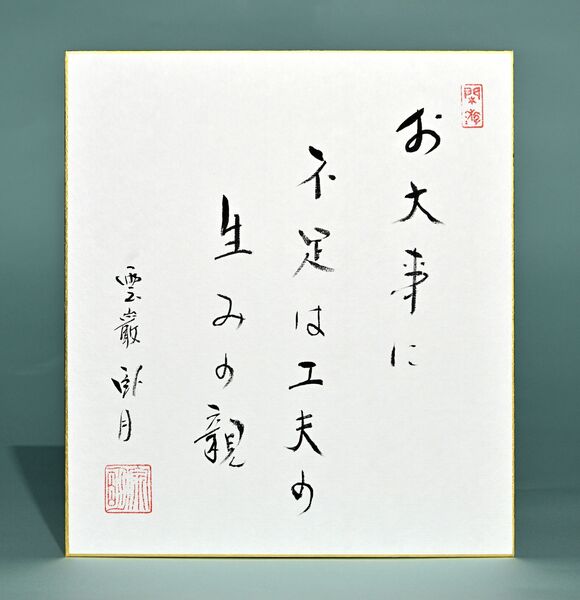 お大事に
不足は工夫の
生みの親
雲巖 臥月